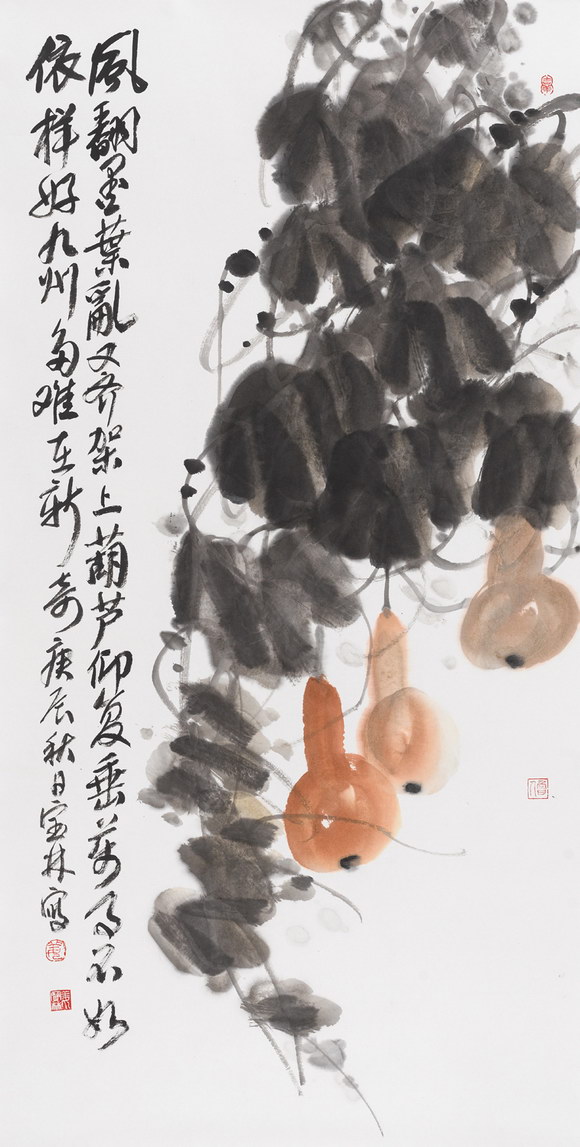 風翻墨葉亂又齐架上葫芦仰复垂萬事不如
依样好九州多难在新奇庚辰秋日宝林写